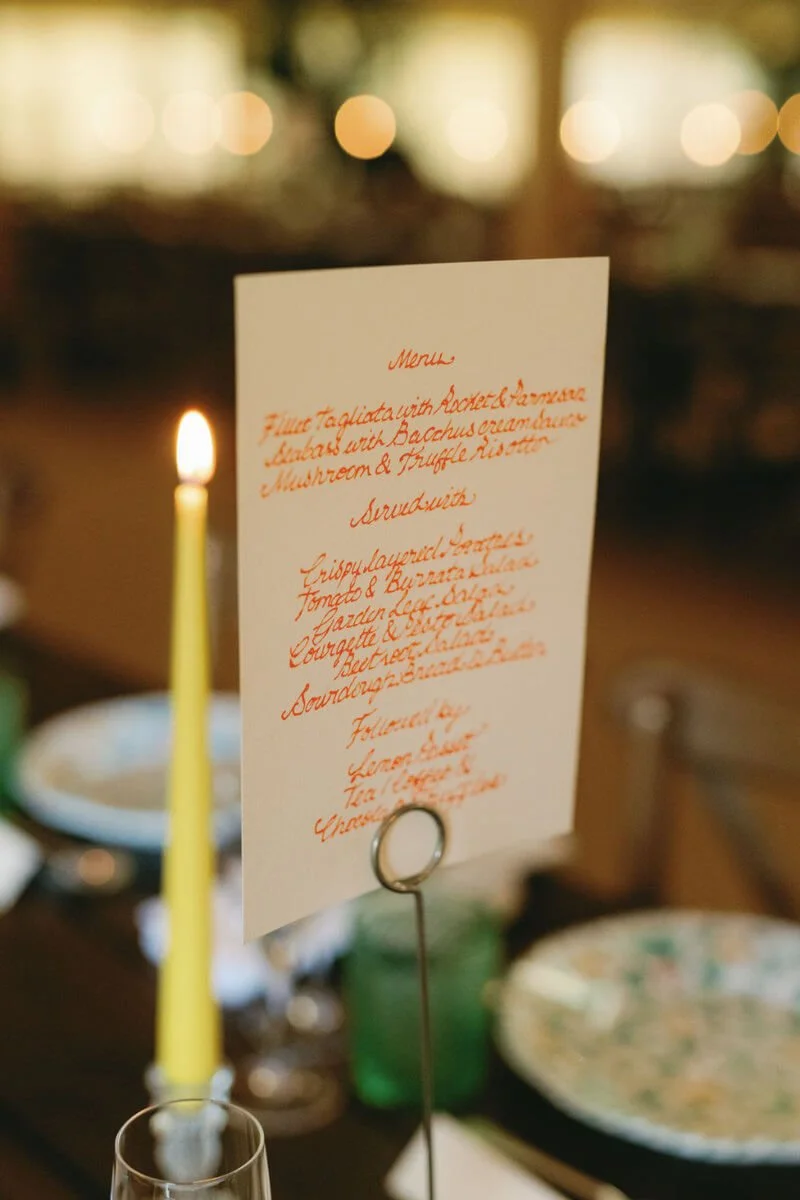 Menu
Fillet Tagliata with Rocket & Parmesan
Seabass with Bacchus cream sauce
Mushroom & Truffle Risotto
Served with
Crispy layered Potatoes
Tomato & Burrata Salad
Garden Leaf Salad
Courgette & Pesto Salad
Beetroot Salad
Sourdough Bread & Butter
Followed by
Lemon Posset
Tea / Coffee &
Chocolate Truffles